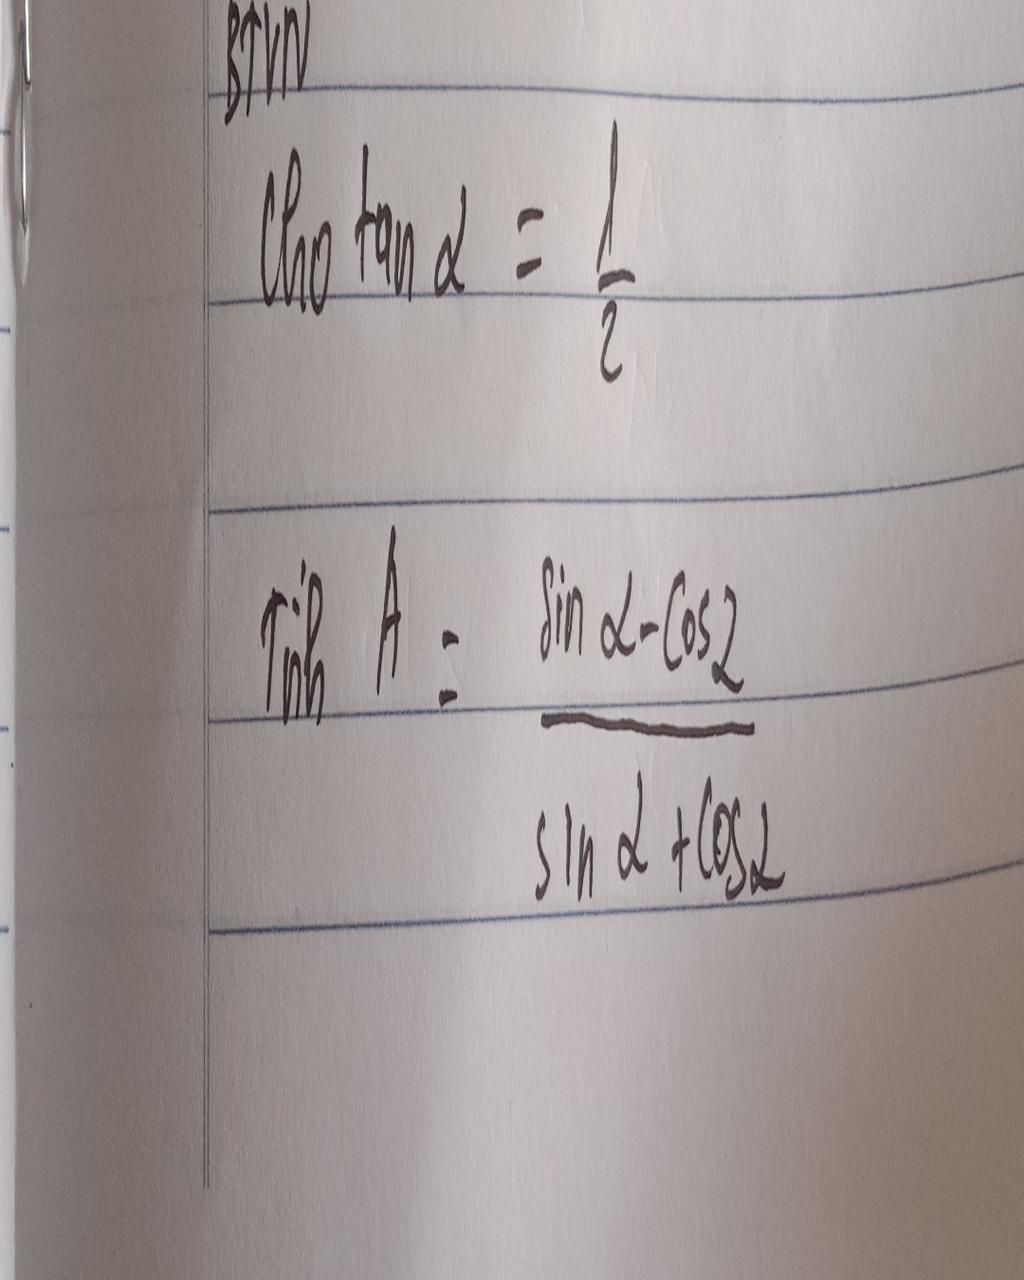 BTVN
Cho tan α = 1/2
Tính A = sin α - cos α
sin α + cos α